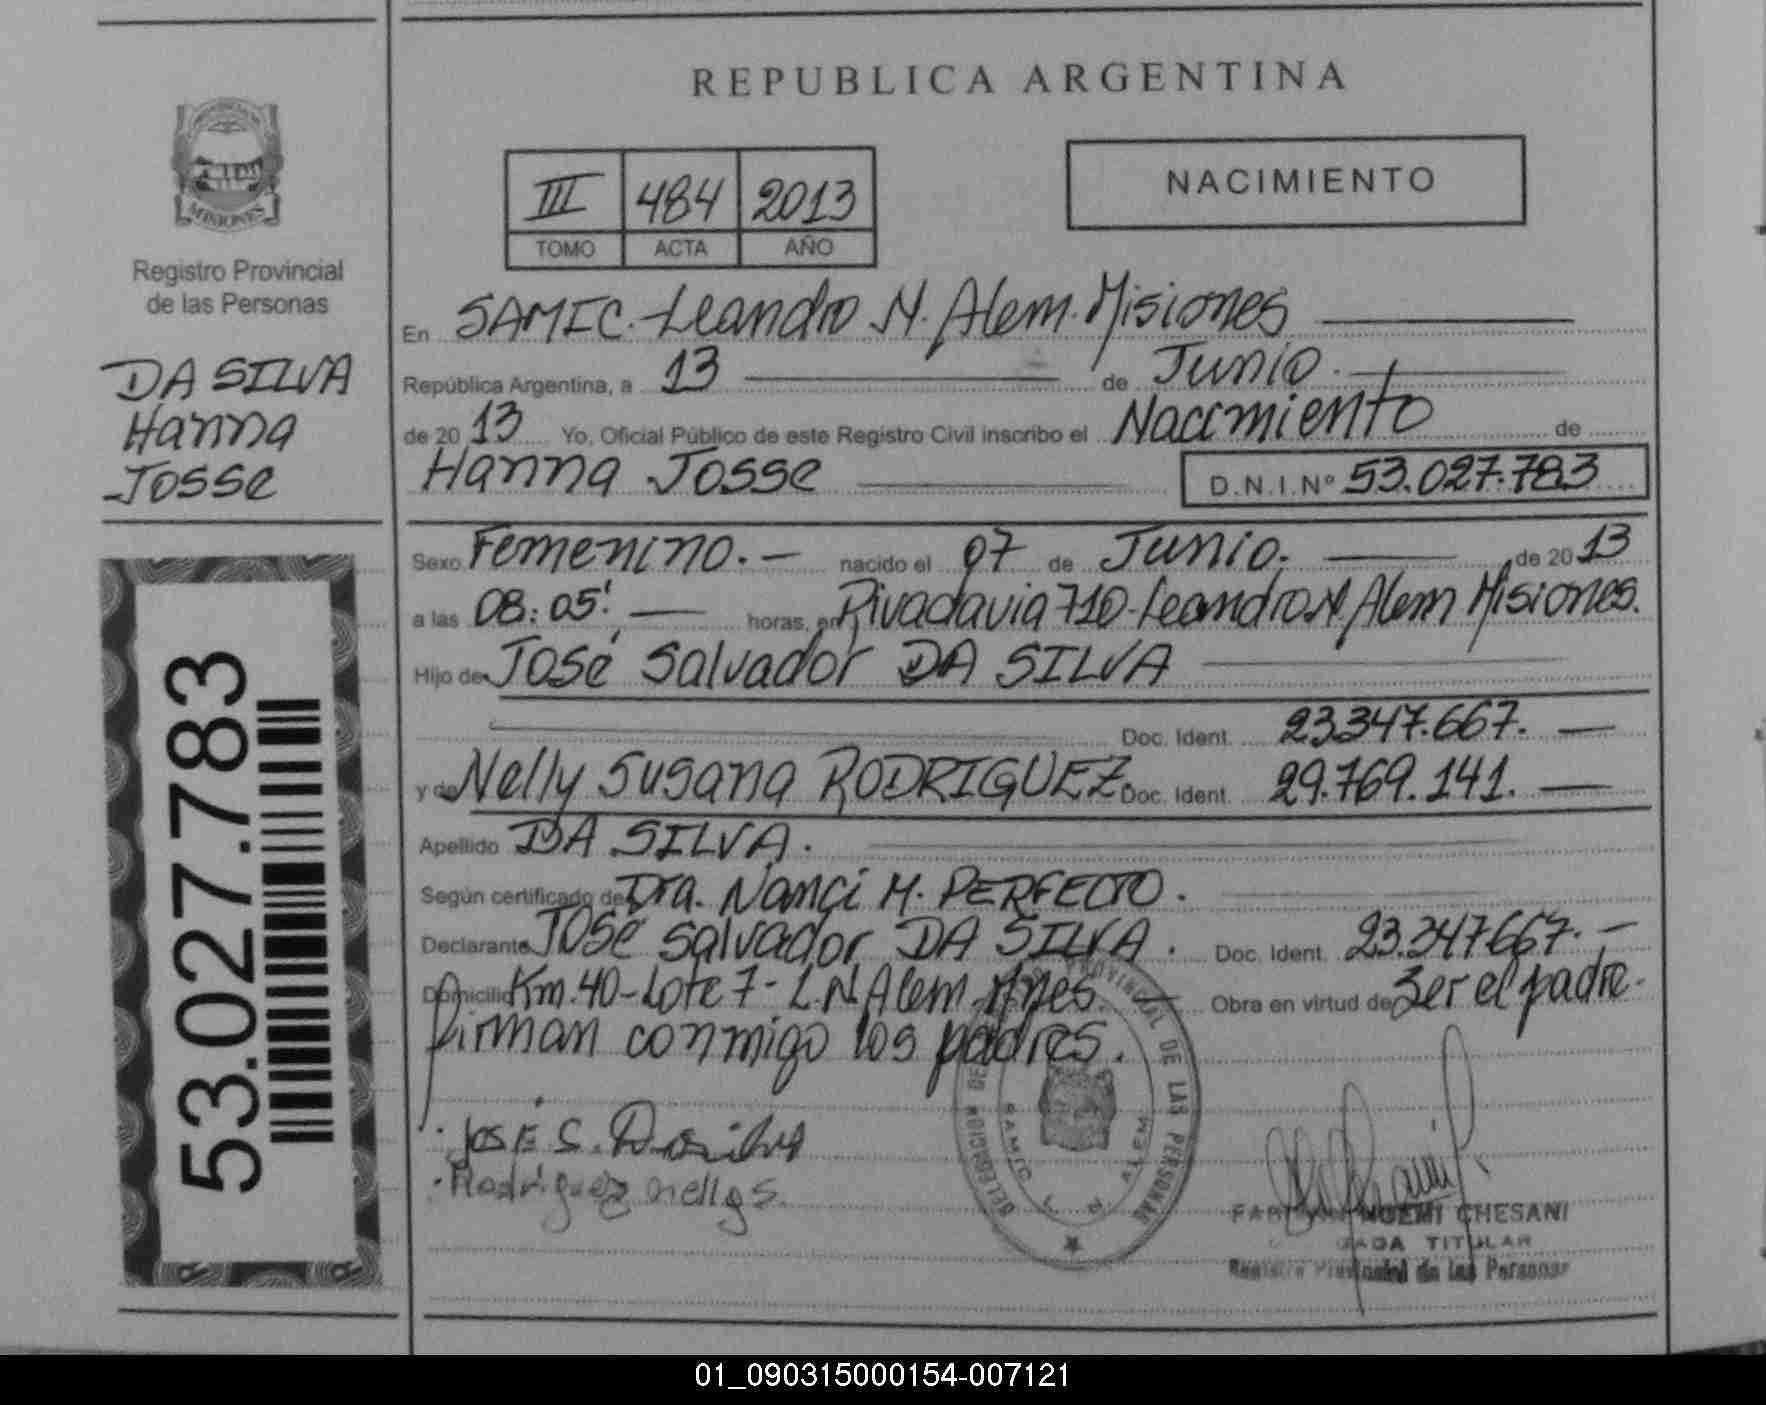 REPUBLICA ARGENTINA
NACIMIENTO
III 484 2013
TOMO ACTA AÑO
MISIONES
Registro Provincial
de las Personas
DA SILVA
Hanna
Josse
53.027.783
En SAMIC. Leandro N. Alem. Misiones
República Argentina, a 13 de Junio.
de 20 13 Yo, Oficial Público de este Registro Civil inscribo el Nacimiento de
Hanna Josse D.N.I.Nº 53.027.783
Sexo Femenino. nacido el 07 de Junio. de 20 13
a las 08:05! horas, en Rivadavia 710-Leandro N. Alem Misiones.
Hijo de José Salvador DA SILVA
Doc. Ident. 23.347.667.
y de Nelly Susana RODRIGUEZ Doc. Ident. 29.769.141.
Apellido DA SILVA.
Según certificado de Dra. Nanci M. PERFECTO.
Declarante José Salvador DA SILVA. Doc. Ident. 23.347667.
Domicilio Km.40-Lote 7- L.N Alem. Mnes. Obra en virtud de Ser el padre.
firman conmigo los padres.
José S. Dasilva
Rodriguez nelly s.
DELEGACION DEL REGISTRO PROVINCIAL DE LAS PERSONAS
SAMIC L. N. ALEM
NOEMI CHESANI
TITULAR
Registro Provincial de las Personas
01_090315000154-007121